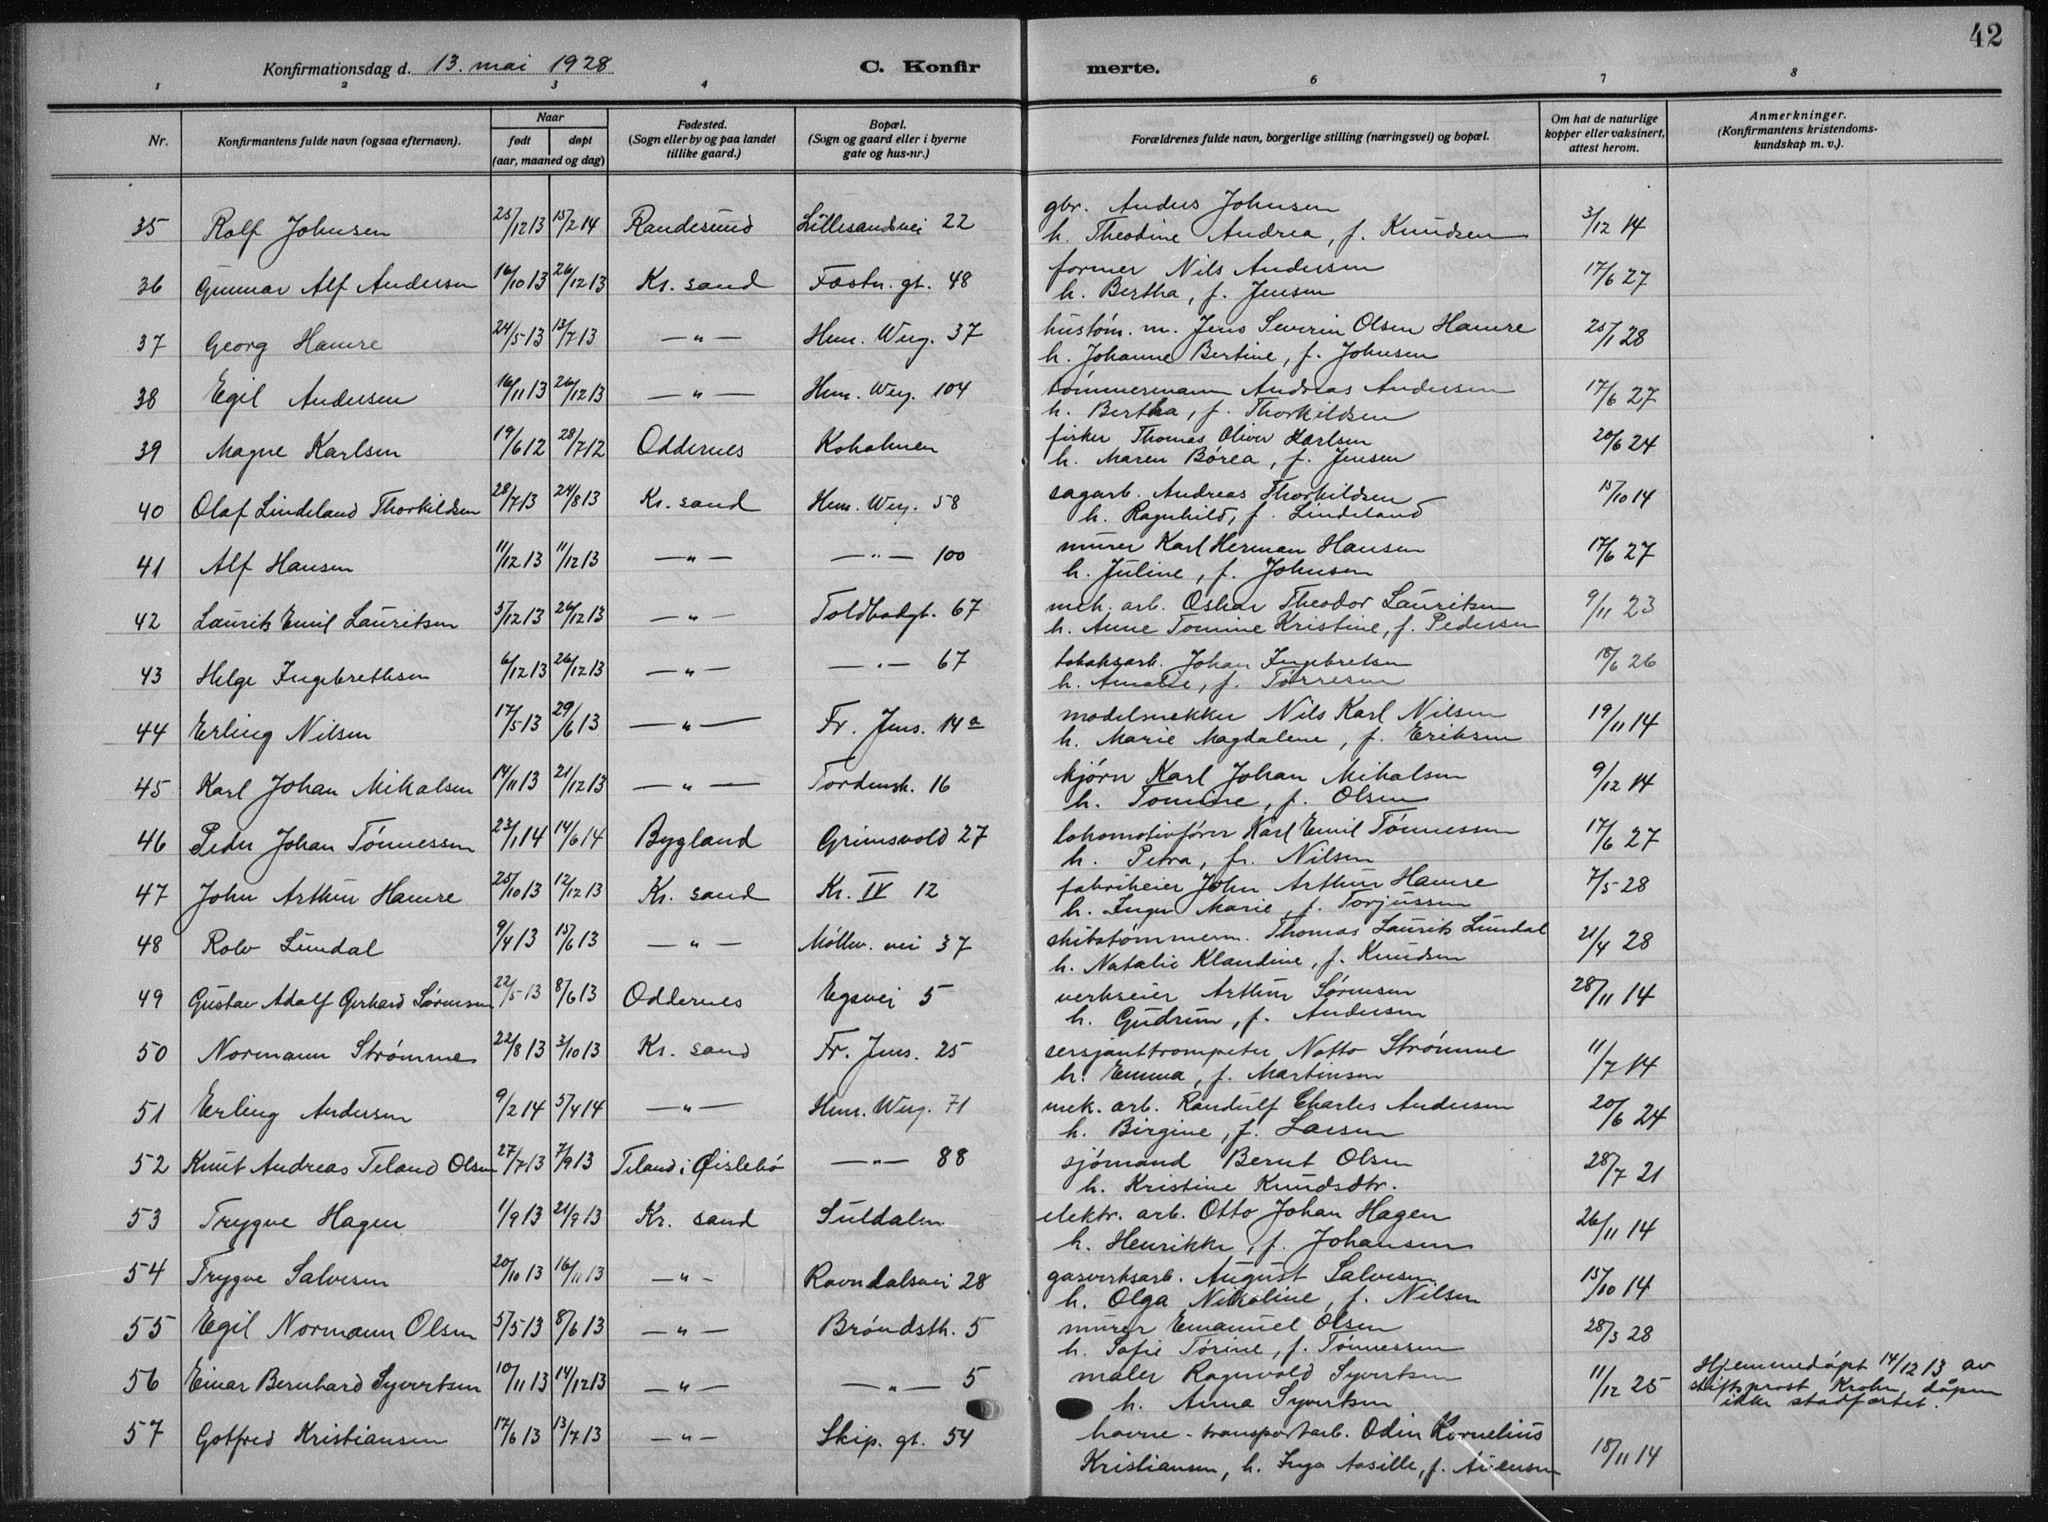 42
Konfirmationsdag d. 13. mai 1928 C. Konfir merte.
1 2 3 4 5 6 7 8
Nr. Konfirmantens fulde navn (ogsaa efternavn). Naar født døpt (aar, maaned og dag) Fødested. (Sogn eller by og paa landet tillike gaard.) Bopæl. (Sogn og gaard eller i byerne gate og hus-nr.) Forældrenes fulde navn, borgerlige stilling (næringsvei) og bopæl. Om hat de naturlige kopper eller vaksinert, attest herom. Anmerkninger. (Konfirmantens kristendoms-kundskap m. v.).
35 Rolf Johnsen 25/12 13 15/2 14 Randesund Lillesandsvei 22 gbr. Anders Johnsen
h. Theodine Andrea, f. Knudsen 3/12 14
36 Gunnar Alf Andersen 16/10 13 26/12 13 Kr. sand Fæstn. gt. 48 former Nils Andersen
h. Bertha, f. Jensen 17/6 27
37 Georg Hamre 24/5 13 13/7 13 — " — Hen. Werg. 37 hustøm. m. Jens Severin Olsen Hamre
h. Johanne Bertine, f. Johnsen 25/1 28
38 Egil Andersen 16/11 13 26/12 13 — " — Hen. Werg. 104 tømmermann Andreas Andersen
h. Bertha, f. Thorkildsen 17/6 27
39 Magne Karlsen 19/6 12 28/7 12 Oddernes Koholmen fisker Thomas Oliver Karlsen
h. Maren Børea, f. Jensen 20/6 24
40 Olaf Lindeland Thorkildsen 28/7 13 24/8 13 Kr. sand Hen. Werg. 58 sagarb. Andreas Thorkildsen
h. Ragnhild, f. Lindeland 15/10 14
41 Alf Hansen 11/12 13 11/12 13 — " — — " — 100 murer Karl Herman Hansen
h. Juline, f. Johnsen 17/6 27
42 Laurits Emil Lauritsen 5/12 13 26/12 13 — " — Toldbodgt. 67 mek. arb. Oskar Theodor Lauritsen
h. Anne Tomine Kristine, f. Pedersen 9/11 23
43 Helge Ingebrethsen 6/12 13 26/12 13 — " — — " — 67 tobaksarb. Johan Ingebretsen
h. Amalie, f. Tørresen 18/6 26
44 Erling Nilsen 17/5 13 29/6 13 — " — Fr. Jens. 14a modelsnekker Nils Karl Nilsen
h. Marie Magdalene, f. Eriksen 19/11 14
45 Karl Johan Mikalsen 14/11 13 21/12 13 — " — Tordensk. 16 kjørn Karl Johan Mikalsen
h. Tomine, f. Olsen 9/12 14
46 Peder Johan Tønnessen 23/1 14 14/6 14 Bygland Grimsvold 27 lokomotivfører Karl Emil Tønnessen
h. Petra, f. Nilsen 17/6 27
47 John Arthur Hamre 25/10 13 12/12 13 Kr. sand Kr. IV 12 fabrikeier John Arthur Hamre
h. Inger Marie, f. Torjussen 7/5 28
48 Rolv Lundal 9/4 13 15/6 13 — " — Møllev. vei 37 skibstømmerm. Thomas Laurits Lundal
h. Natalie Klaudine, f. Knudsen 21/4 28
49 Gustav Adolf Gerhard Sørensen 22/5 13 8/6 13 Oddernes Egsvei 5 verkseier Arthur Sørensen
h. Gudrun, f. Andersen 28/11 14
50 Normann Strømme 22/8 13 3/10 13 Kr. sand Fr. Jens. 25 sersjanttrompeter Notto Strømme
h. Emma, f. Martinsen 11/7 14
51 Erling Andersen 9/2 14 5/4 14 — " — Hen. Werg. 71 mek. arb. Randulf Charles Andersen
h. Birgine, f. Larsen 20/6 24
52 Knut Andreas Teland Olsen 27/7 13 7/9 13 Teland i Øislebø — " — 88 sjømand Bernt Olsen
h. Kristine Knudsdtr. 28/7 21
53 Trygve Hagen 1/9 13 21/9 13 Kr. sand Suldalen elektr. arb. Otto Johan Hagen
h. Henrikke, f. Johansen 26/11 14
54 Trygve Salvesen 20/10 13 16/11 13 — " — Ravndalsvei 28 gasverksarb. August Salvesen
h. Olga Nikoline, f. Nilsen 15/10 14
55 Egil Normann Olsen 5/5 13 8/6 13 — " — Brøndsth. 5 murer Emanuel Olsen
h. Sofie Tørine, f. Tønnessen 28/3 28
56 Einar Bernhard Syvertsen 10/11 13 14/12 13 — " — — " — 5 maler Ragnvald Syvertsen
h. Anna Syvertsen 11/12 25 Hjemmedøpt 14/12 13 av
stiftsprost Krohn, dåpen
ikke stadfæstet.
57 Gotfred Kristiansen 17/6 13 13/7 13 — " — Skip. gt. 54 havne-transportarb. Odin Kornelius
Kristiansen, h. Inga Aasille, f. 18/11 14